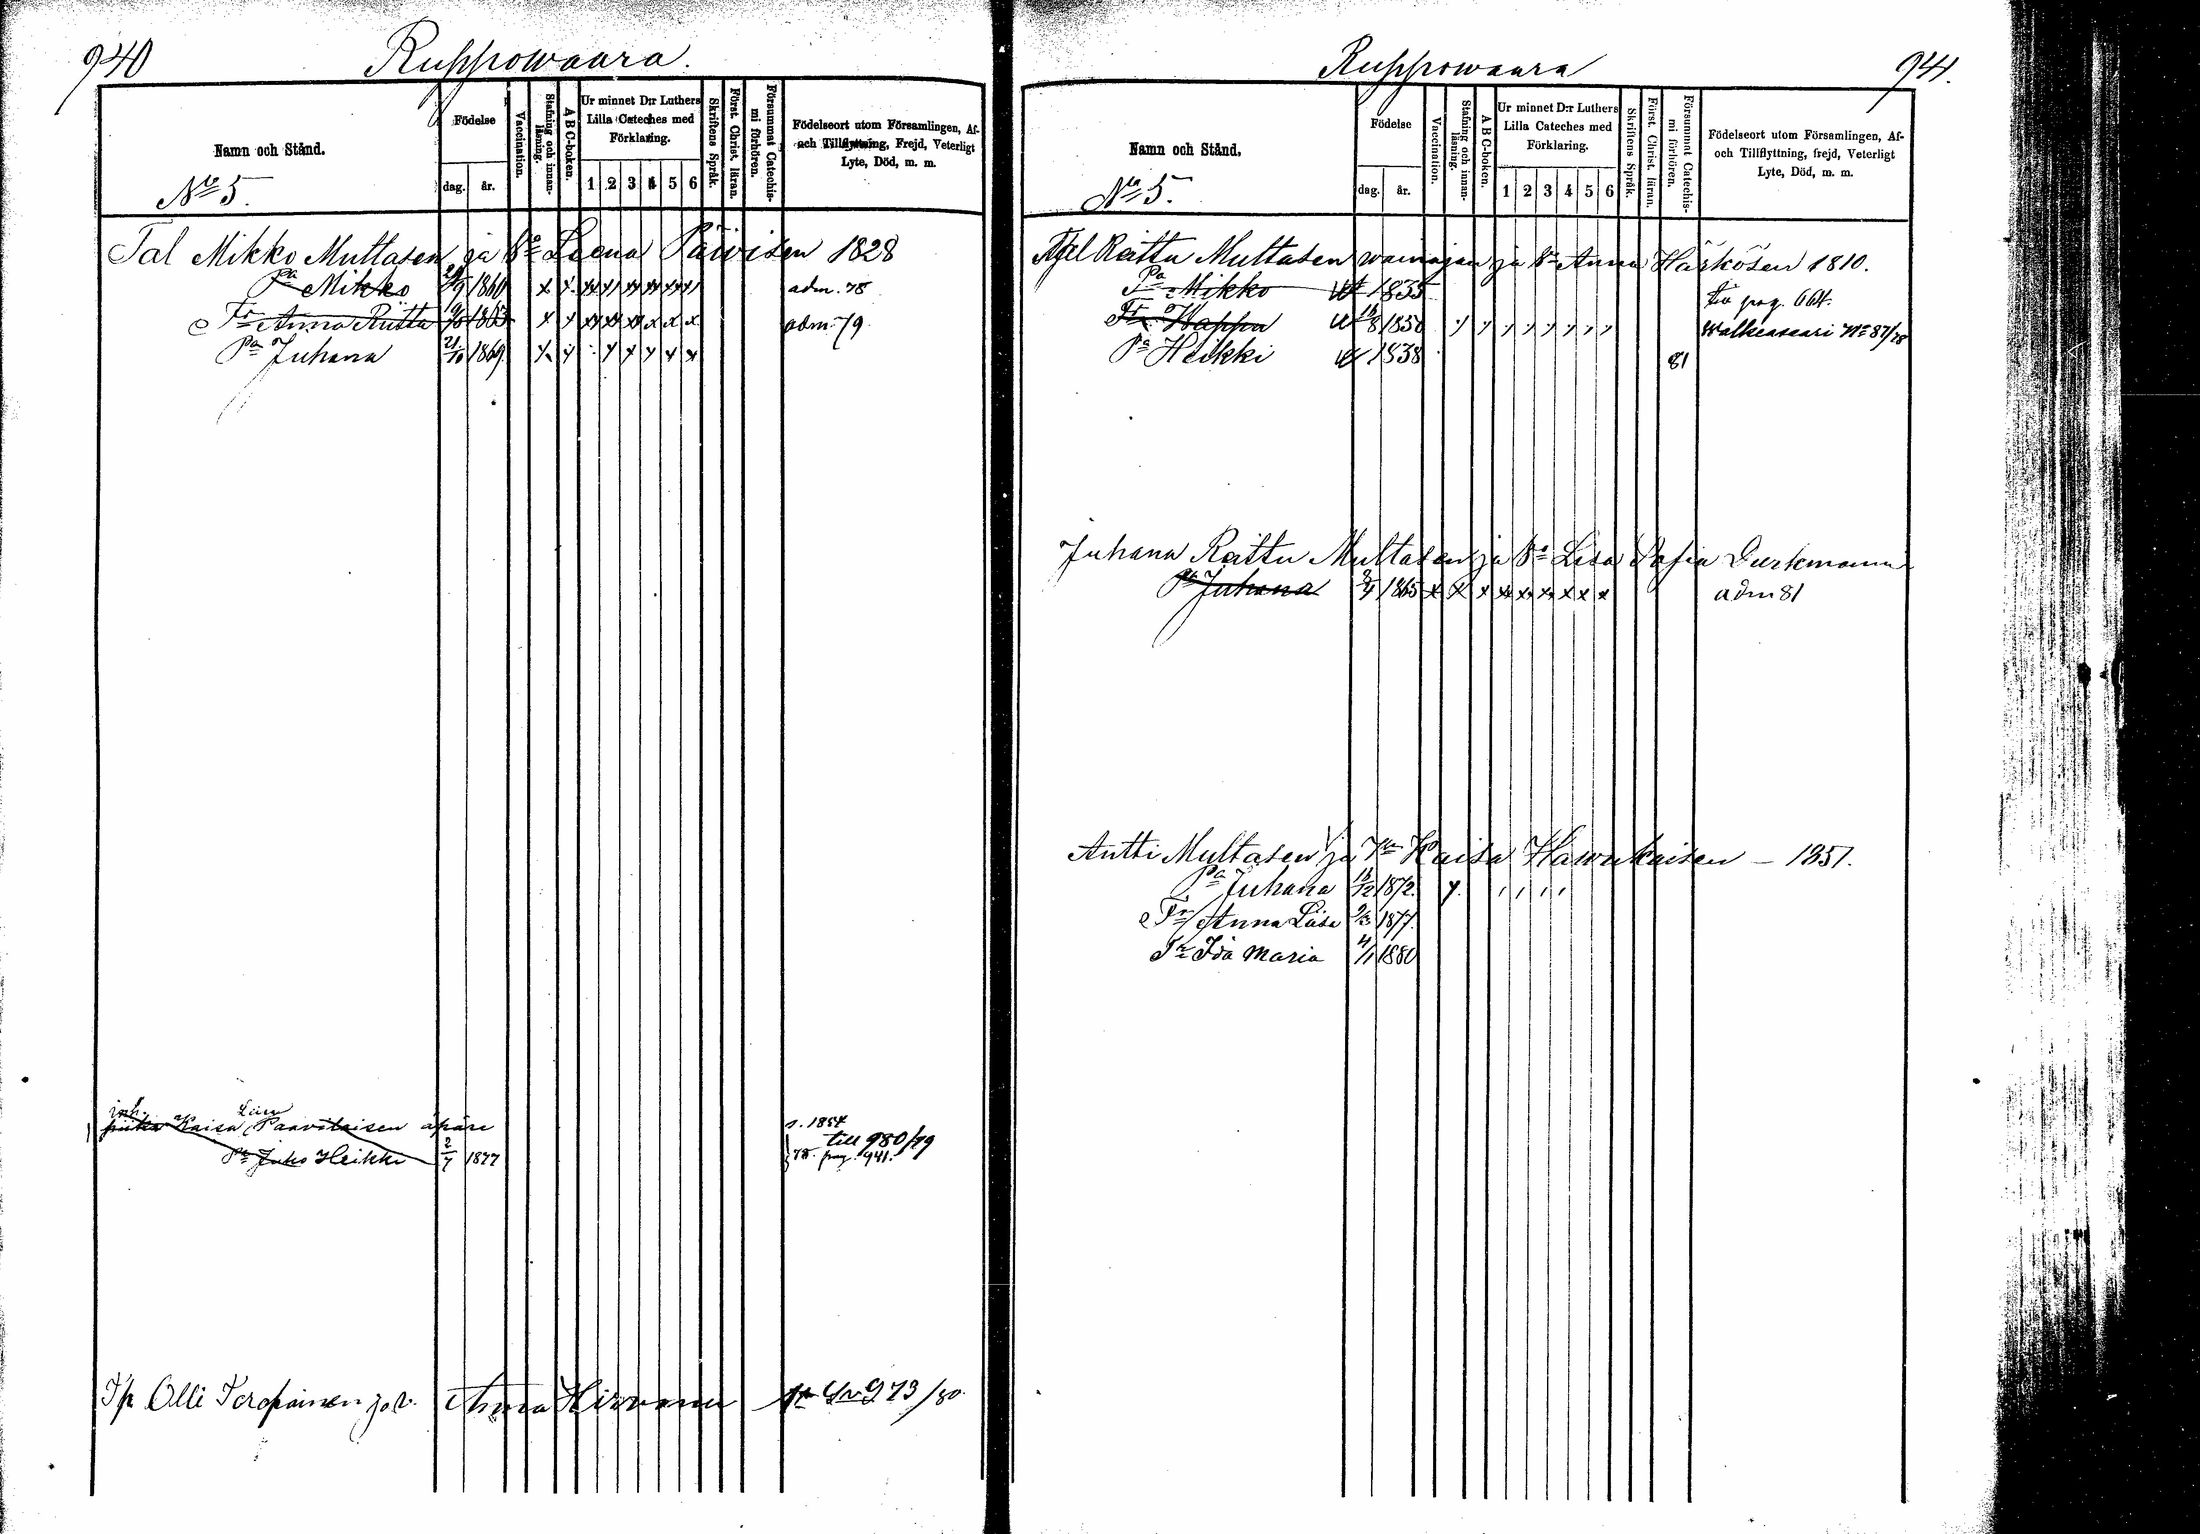 940 Ruppowaara.
Namn och Stånd.
No 5.
Födelse
dag. år.
Vaccination.
Stafning och innanläsning.
A B C-boken.
Ur minnet D:r Luthers
Lilla Cateches med
Förklaring.
1 2 3 4 5 6
Skriftens Språk.
Först. Christ. läran.
Försummat Catechismi förhören.
Födelseort utom Församlingen, Af-
och Tillflyttning, Frejd, Veterligt
Lyte, Död, m. m.
Tal Mikko Multasen ja Vo Leena Päiwisen 1828
Pa Mikko 1860 x x adm. 78
Tr Anna Riitta 1863 x x adm. 79.
Pa Juhana 21/10 1869
Kaisa Liisa Paavilaisen äpäre s. 1854
till 980/79
Pa Juho Heikki 2/7 1877 pag. 941.
Tp Olli Toropainen ja v. Anna Hirvonen 973/80
Ruppowaara 941.
Namn och Stånd.
No 5.
Födelse
dag. år.
Vaccination.
Stafning och innanläsning.
A B C-boken.
Ur minnet D:r Luthers
Lilla Cateches med
Förklaring.
1 2 3 4 5 6
Skriftens Språk.
Först. Christ. läran.
Försummat Catechismi förhören.
Födelseort utom Församlingen, Af-
och Tillflyttning, frejd, Veterligt
Lyte, Död, m. m.
Reittu Multasen wainajan ja Vo Anna Härkösen 1810.
Pa Mikko 1835 pag. 664.
Tr Wappu 1850 Walkeasaari No 87/78
Pa Heikki 1838 81
Juhana Reittu Multasen ja Vo Lisa Sofia
Pa Juhana 1865 x x x x x x x x x adm 81
Antti Multasen ja Vo Kaisa Hawukaisen – 1851.
Pa Juhana 1872.
Tr Anna Liisa 1877.
Tr Ida Maria 4/1 1880